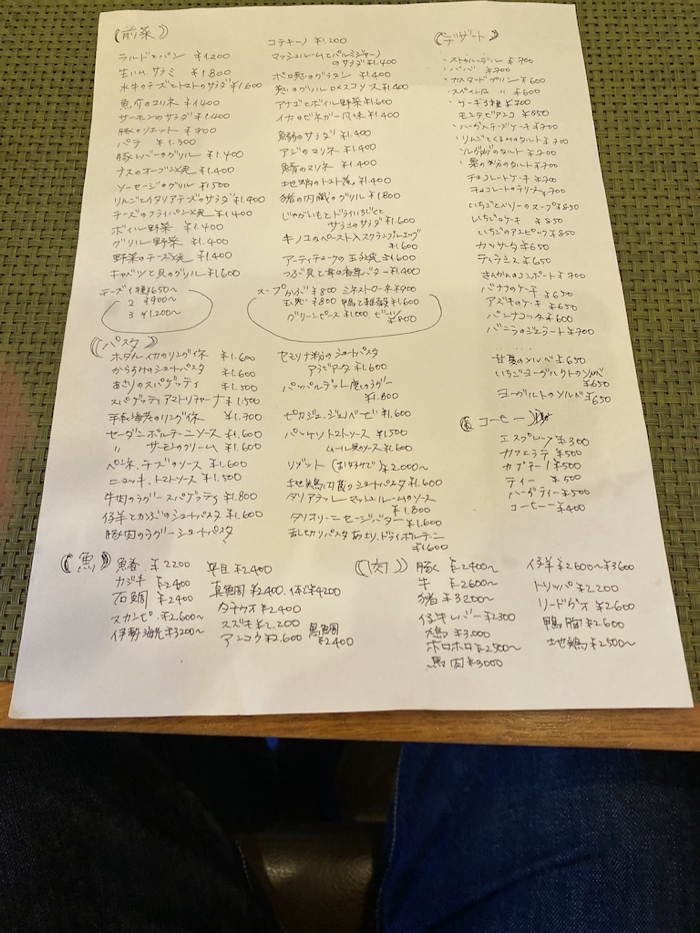 (前菜)
ラルドとパン ¥1200
生ハム サラミ ¥1800
水牛のチーズとトマトのサラダ ¥1,600
魚介のマリネ ¥1400
サーモンのサラダ ¥1400
豚のリエット ¥700
パテ ¥1,300
豚レバーのグリル ¥1,400
ナスのオーブン焼 ¥1,400
ソーセージのグリル ¥1500
りんごとイタリアチーズのサラダ ¥1,400
チーズのフライパン焼 ¥1400
ボイル野菜 ¥1,400
グリル野菜 ¥1,400
野菜のチーズ焼 ¥1,400
キャベツと貝のグリル ¥1,600
チーズ 1種 ¥650〜
2 ¥900〜
3 ¥1,200〜
コテキーノ ¥1,200
マッシュルームとパルミジャーノ
のサラダ ¥1,400
ホロ鶏のグラタン ¥1,400
¥1,400
アナゴとボイル野菜 ¥1,600
イカのビネガー風味 ¥1,400
魚卵のサラダ ¥1,400
アジのマリネ ¥1,400
魚香のマリネ ¥1,400
地鶏のトマト煮 ¥1,400
猪の内臓のグリル ¥1800
じゃがいもとドライいちじくと
サラミのサラダ ¥1,600
キノコのペースト入スクランブルエッグ
¥1,600
アーティチョークの玉子焼 ¥1,600
つぶ貝と茸の香草バター ¥1,400
スープ かぶ ¥800 ミネストローネ ¥900
玉葱 ¥800 鴨と雑穀 ¥1,600
グリーンピース ¥1,000 ビーツ
¥800
(デザート)
・ストゥルーデル ¥700
・ババ ¥700
・カスタードプリン ¥600
・スペイン風 〃 ¥600
・ケーキ3種 ¥700
モンテビアンコ ¥850
・ハーブとチーズケーキ ¥750
・りんごとくるみのタルト ¥700
・栗の粉のタルト ¥700
チョコレートケーキ ¥700
チョコレートのテリーヌ ¥700
いちごとベリーのスープ ¥850
いちごのケーキ ¥850
いちごのアスピック ¥850
カッサータ ¥650
ティラミス ¥650
きんかんのコンポート ¥700
バナナのケーキ ¥650
アズキのケーキ ¥650
パンナコッタ ¥600
バニラのジェラート ¥700
甘夏のソルベ ¥650
いちごヨーグルトのソルベ
¥650
ヨーグルトのソルベ ¥650
(コーヒー)
エスプレッソ ¥300
カフェラテ ¥500
カプチーノ ¥500
ティー ¥500
ハーブティー ¥500
コーヒー ¥400
(パスタ)
ホタルイカのリングイネ ¥1,600
からすみのショートパスタ ¥1,600
あさりのスパゲッティ ¥1,500
スパゲッティ アマトリチャーナ ¥1,500
手長海老のリングイネ ¥1,700
セーダニ ポルチーニソース ¥1,600
〃 サーモンのクリーム ¥1,600
ペンネ、チーズのソース ¥1,600
ニョッキ、トマトソース ¥1,500
牛肉のラグー スパゲッティ ¥1,800
仔羊とかぶのショートパスタ ¥1,600
豚肉のラグー ショートパスタ
セモリナ粉のショートパスタ
アラビアータ ¥1,600
パッパルデッレ 鹿のラグー
¥1,800
ピカジェ・ジェノベーゼ ¥1,600
パッケリ トマトソース ¥1500
ムール貝のソース ¥1,600
リゾット (お好みで) ¥2,000〜
地鶏内臓のショートパスタ ¥1,600
タリアテッレ マッシュルームのソース
¥1,800
タリオリーニ セージバター ¥1,600
乱切りパスタ あさり、ドライポルチーニ
¥1,600
(魚)
魚香 ¥2200
カジキ ¥2400
石鯛 ¥2400
スカンピ ¥2,600〜
伊勢海老 ¥3200〜
平目 ¥2400
真鯛 ¥2400、1尾 ¥4200
タチウオ ¥2,400
スズキ ¥2,200
アンコウ ¥2,600
黒鯛
¥2,400
(肉)
豚 ¥2400〜
牛 ¥2600〜
猪 ¥3200〜
仔牛レバー ¥2300
鳩 ¥3,000
ホロホロ ¥2500〜
馬肉 ¥3000
仔羊 ¥2600〜¥3600
トリッパ ¥2,200
リードヴォ ¥2,600
鴨胸 ¥2,600
地鶏 ¥2,500〜